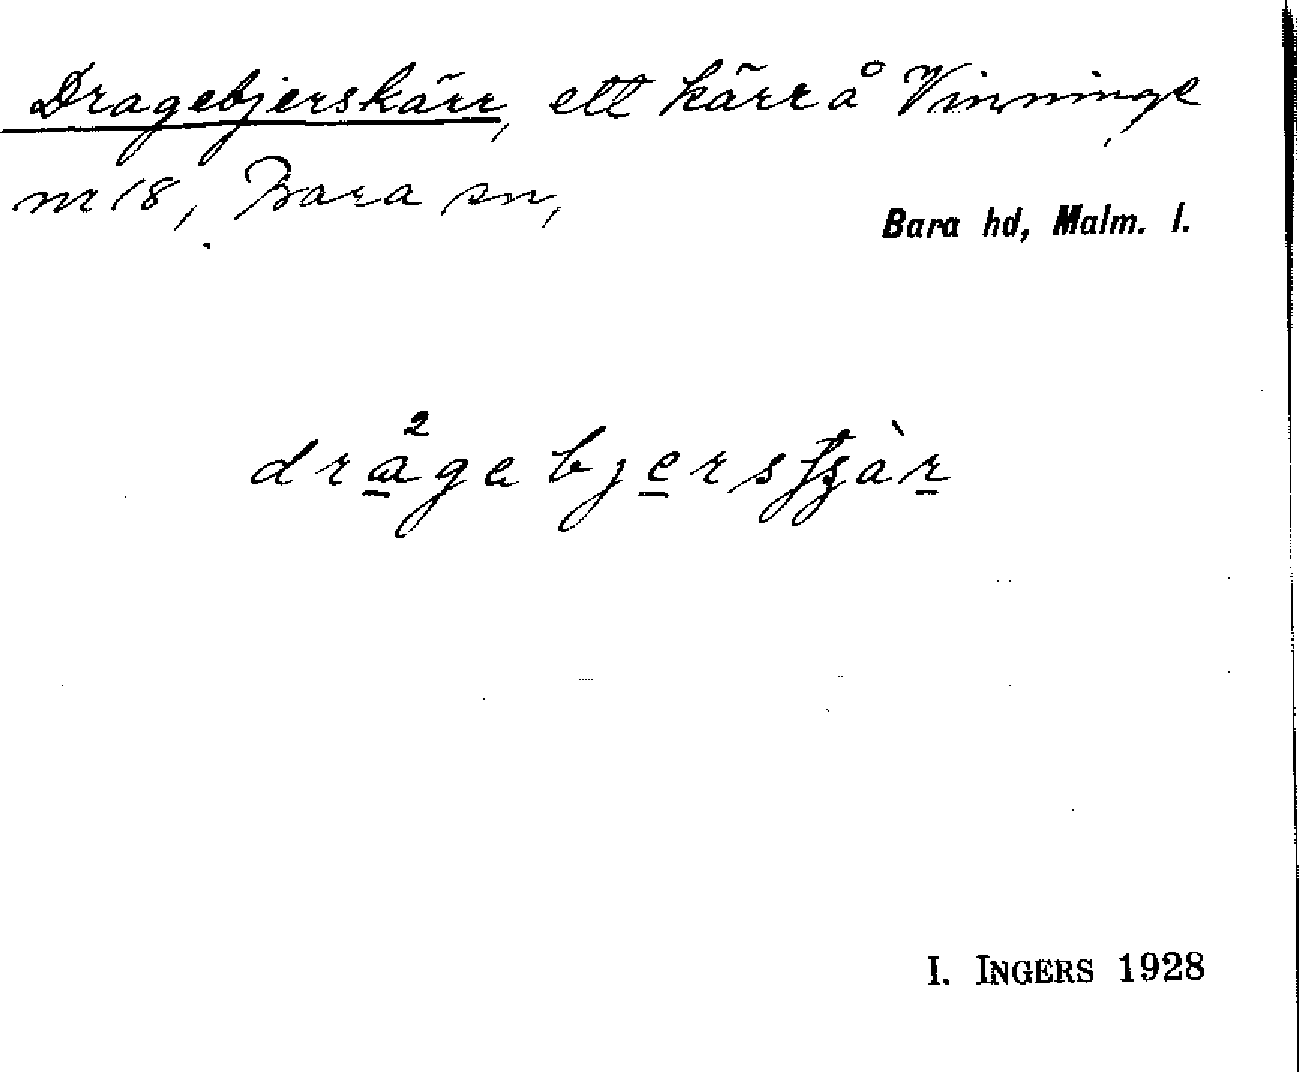 Dragebjerskärr, ett kärr å Vinninge
nr 18, Bara sn,
Bara hd, Malm. l.
I. INGERS 1928